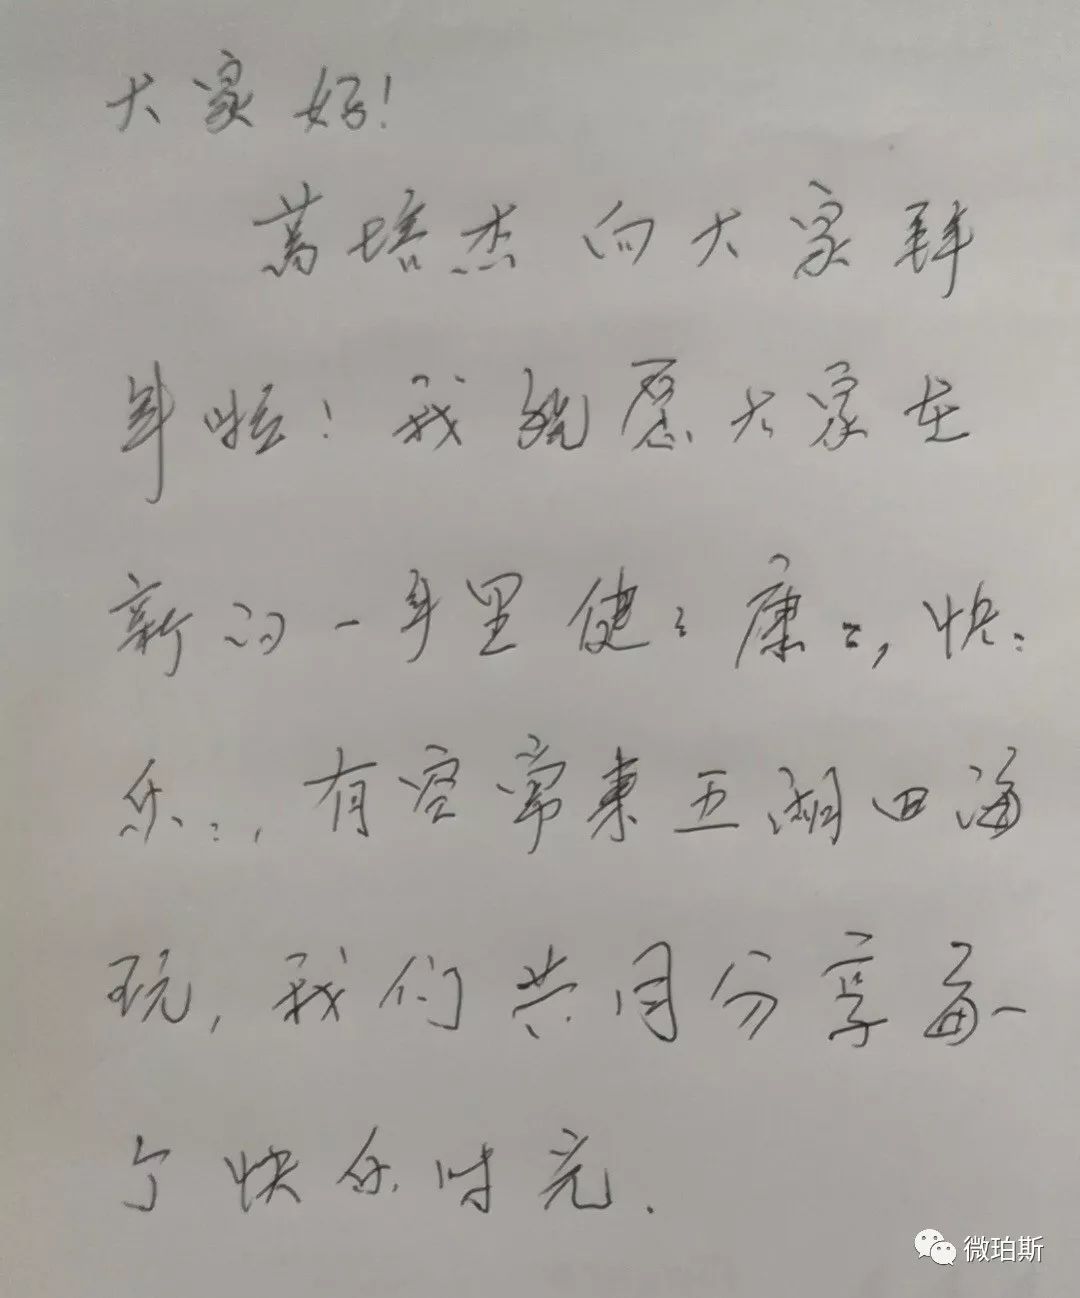 大家好!
葛培杰向大家拜
年啦!我祝愿大家在
新的一年里健:康:,快:
乐:,有容常来五湖四海
玩,我们共同分享每一
个快乐时光.
微珀斯